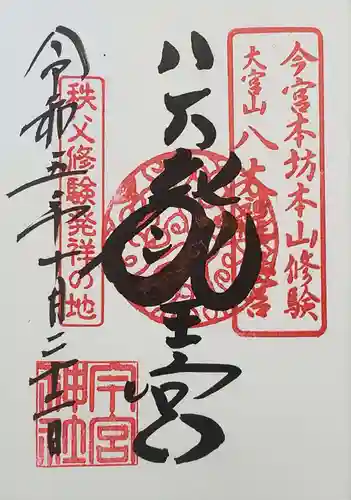 今宮本坊本山修験
大宮山 八大
八大龍王宮
秩父修験発祥の地
令和五年十月二十二日
今宮
神社